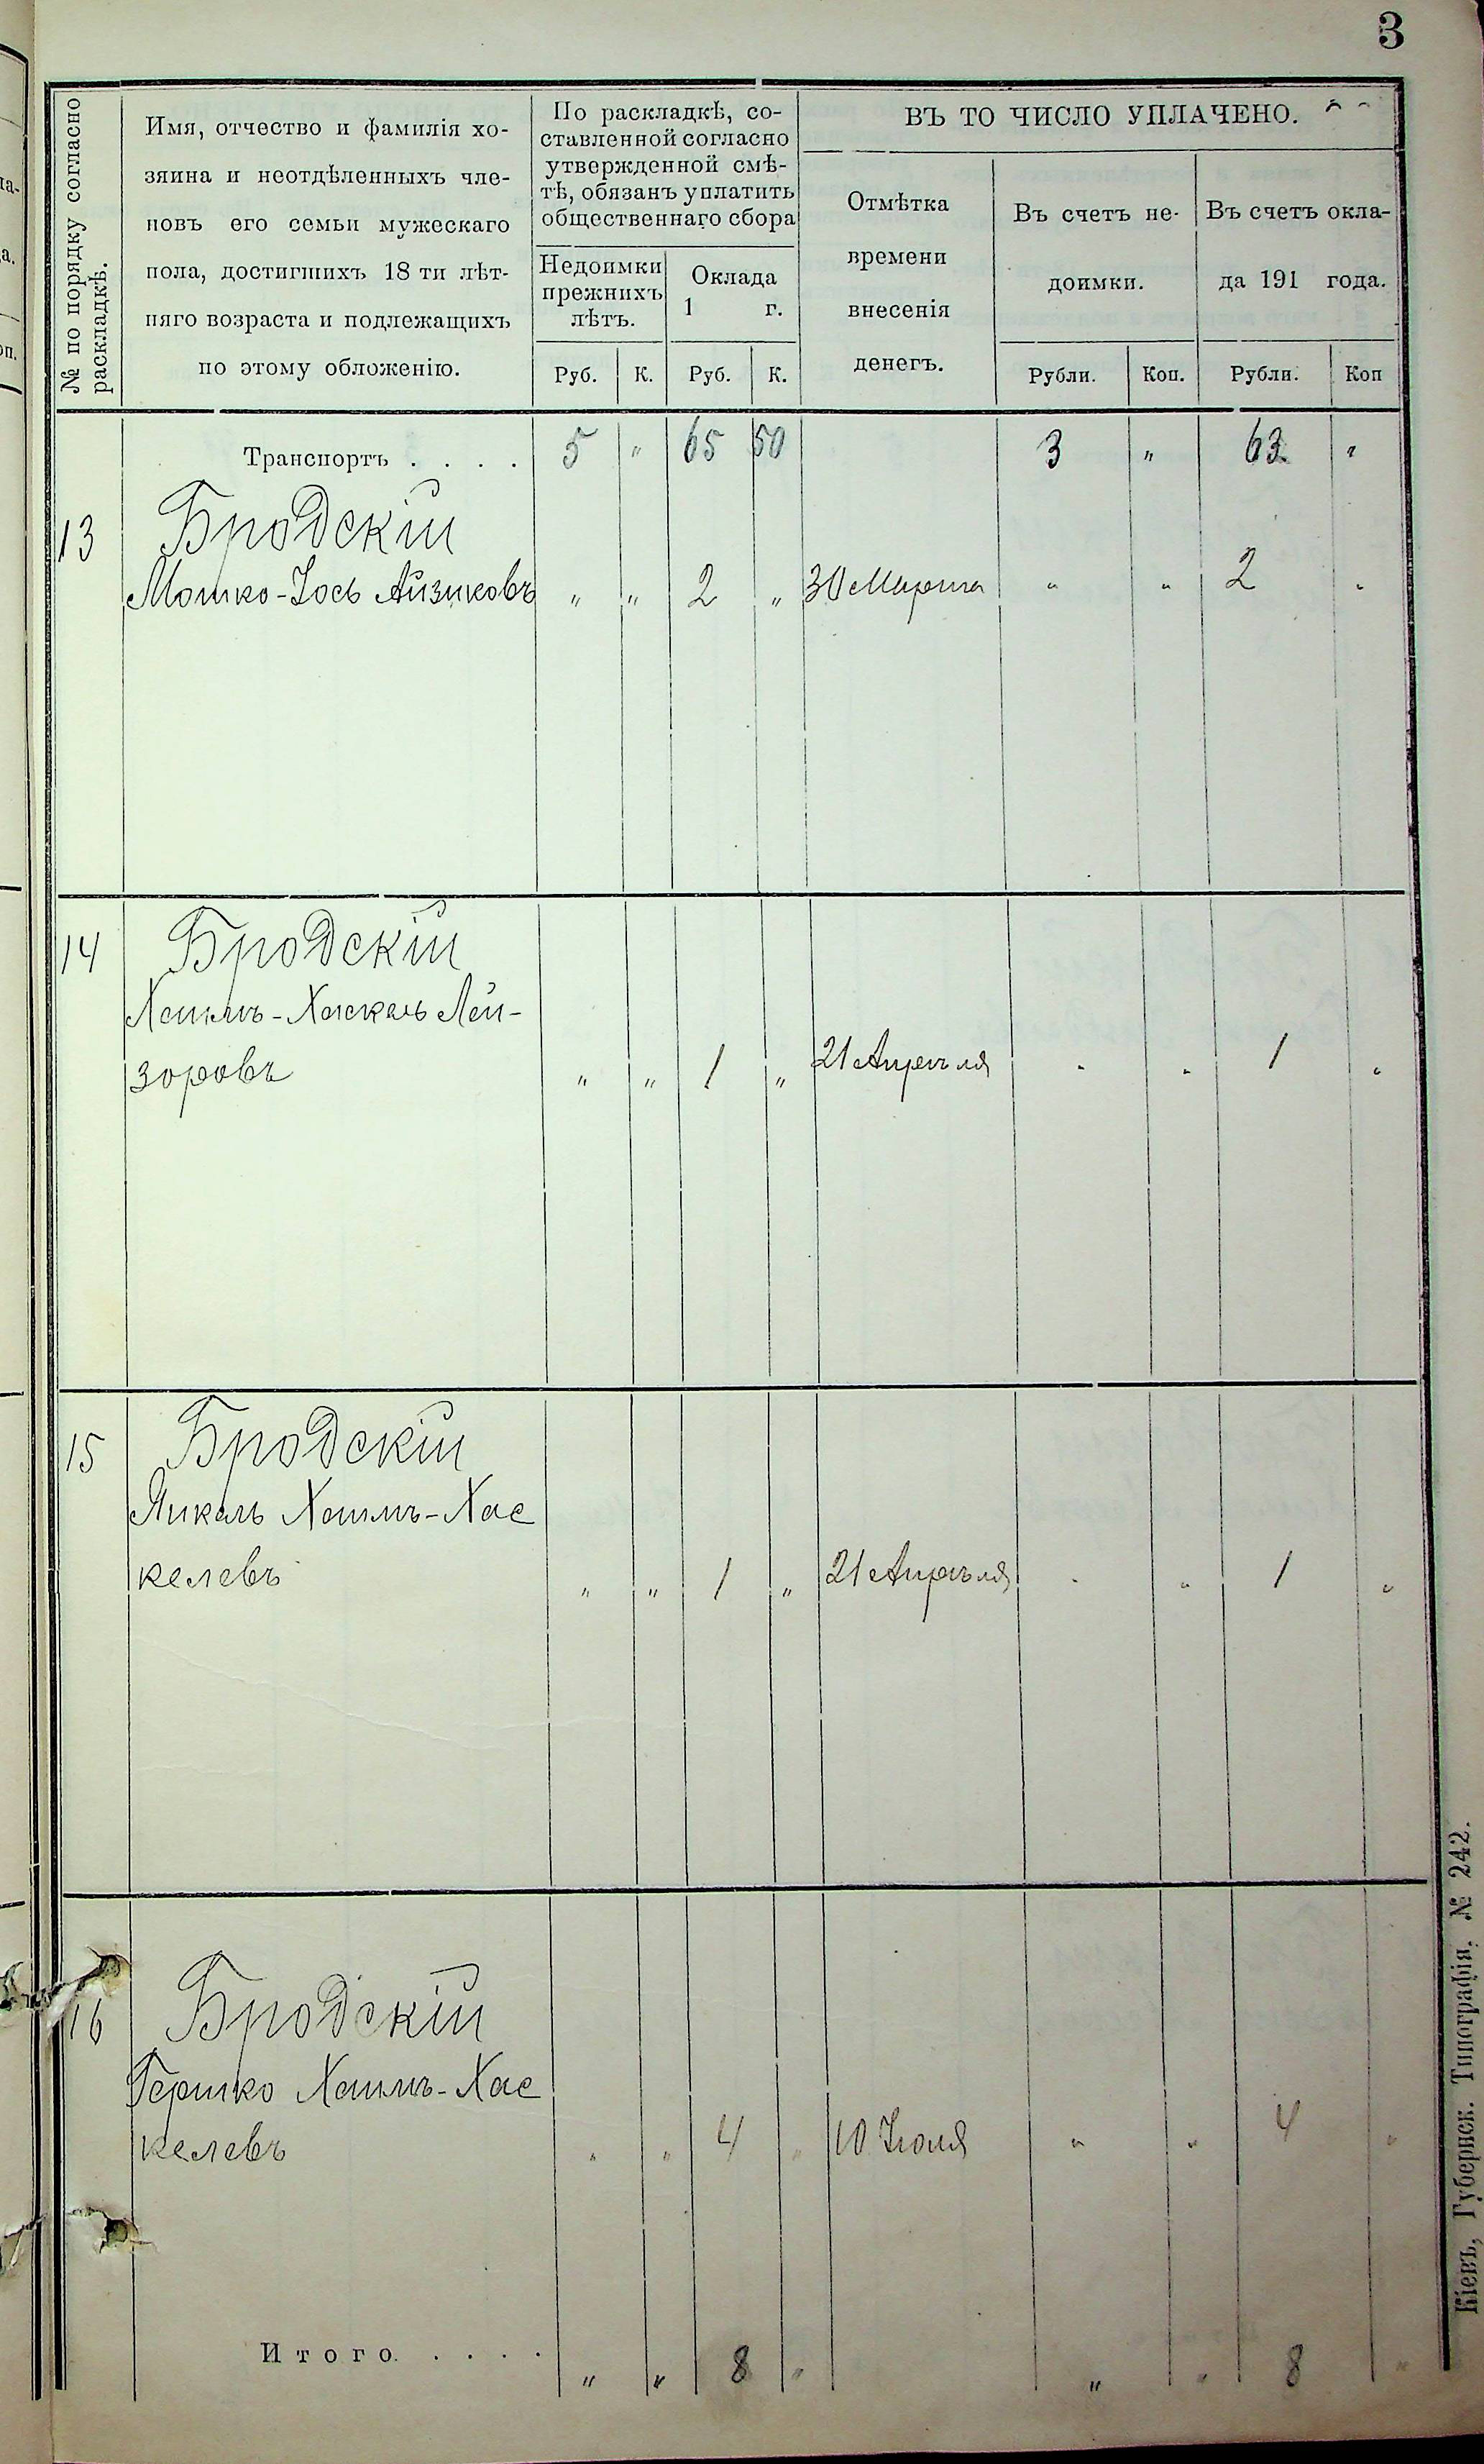 3
№ по порядку согласно
раскладкѣ.
Имя, отчество и фамилія хо-
зяина и неотдѣленныхъ чле-
новъ его семьи мужескаго
пола, достигшихъ 18 ти лѣт-
няго возраста и подлежащихъ
по этому обложенію.
По раскладкѣ, со-
ставленной согласно
утвержденной смѣ-
тѣ, обязанъ уплатить
общественнаго сбора
Недоимки
прежнихъ
лѣтъ.
Оклада
1 г.
ВЪ ТО ЧИСЛО УПЛАЧЕНО.
Отмѣтка
времени
внесенія
денегъ.
Въ счетъ не-
доимки.
Въ счетъ окла-
да 191 года.
Руб. К. Руб. К. Рубли. Коп. Рубли. Коп
Транспортъ . . . . 5 " 65 50 3 " 63 "
13 Бродскій
Мошко-Іось Айзиковъ " " 2 " 30 Марта " " 2 "
14 Бродскій
Хаимъ-Хаскель Лей-
зоровъ " " 1 " 21 Апрѣля " " 1 "
15 Бродскій
Янкель Хаимъ-Хас
келевъ " " 1 " 21 Апрѣля " " 1 "
16 Бродскій
Гершко Хаимъ-Хас
келевъ " " 4 " 10 Іюля " " 4 "
Итого. . . . . " " 8 " " " 8 "
Кіевъ, Губернск. Типографія, № 242.